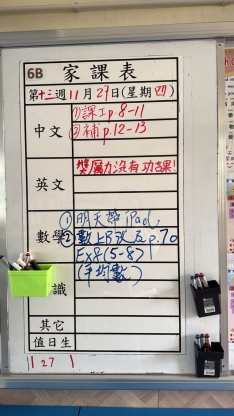 6B 家課表
第十三週 11月27日(星期四)
中文 ①課工p.8-11
②補p.12-13
英文 獎勵力沒有功課!
數學 ①明天帶iPad,
②數上B p.70
Ex8(5-8)
識 (平均數)
其它
值日生
1 27 1